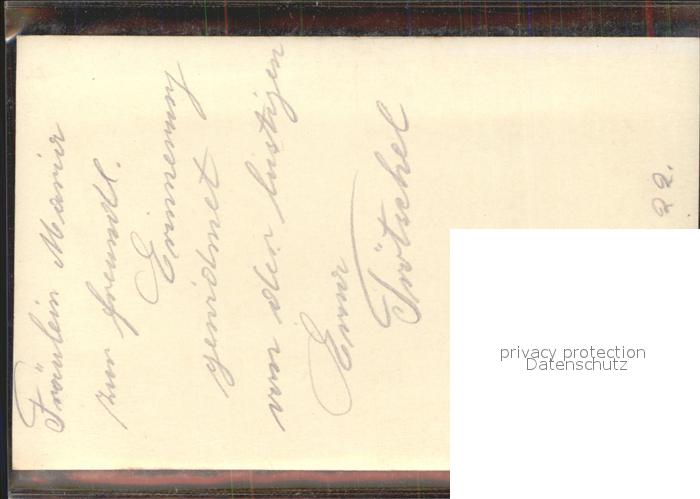 Fräulein Marie
zur freundl.
Erinnerung
gewidmet
von der lustigen
Erna
Trötschel
22.
privacy protection
Datenschutz